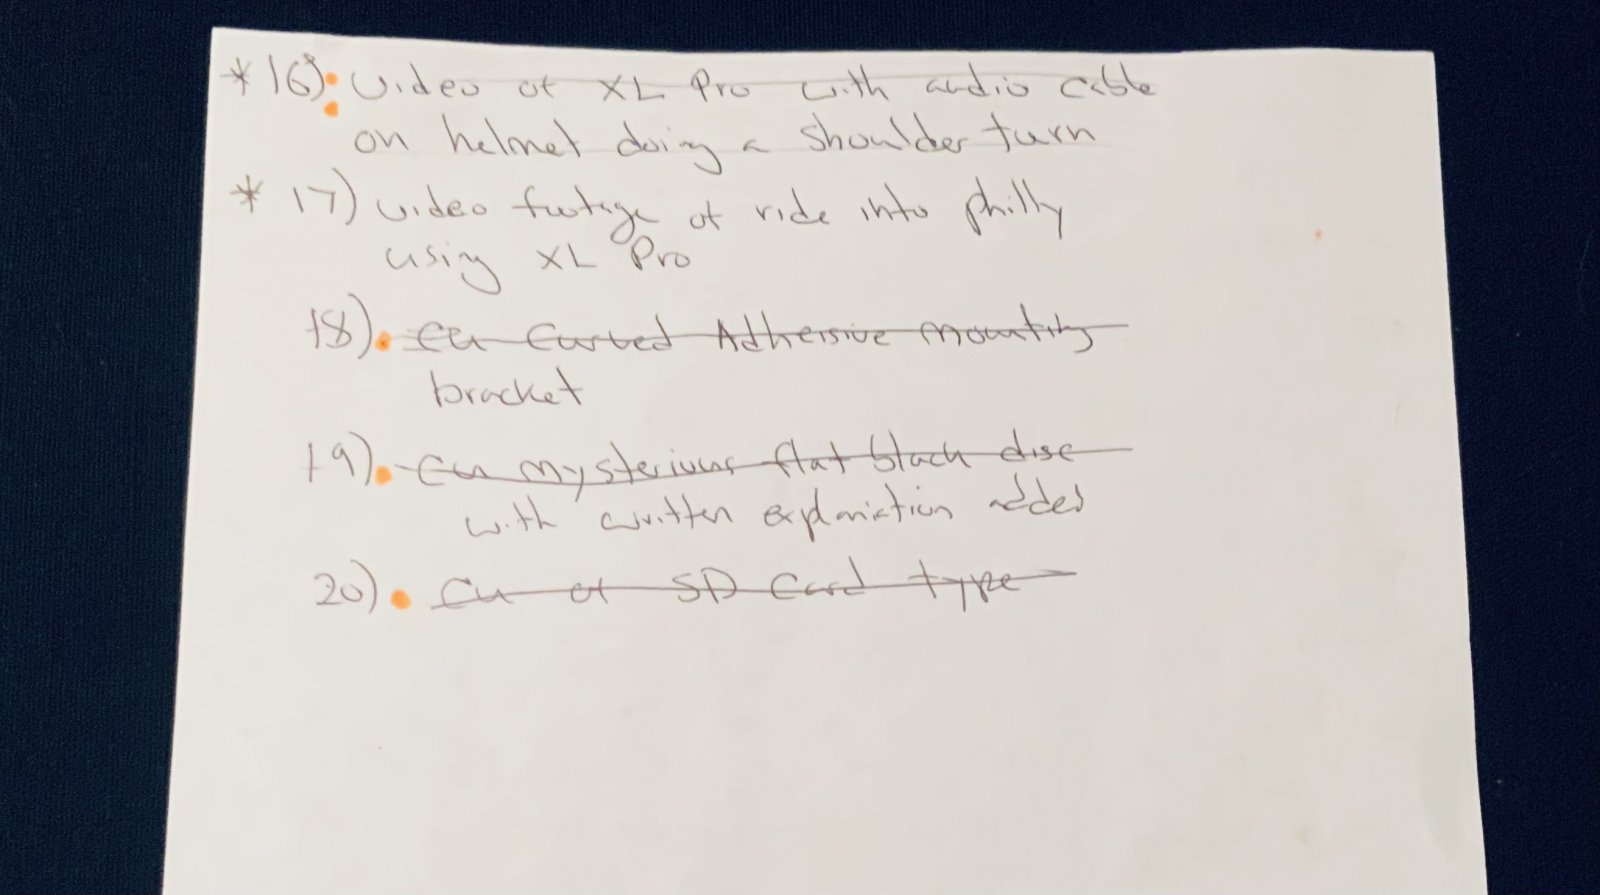 * 16) video of XL Pro with audio cable
on helmet doing a shoulder turn
* 17) video footage of ride into philly
using XL Pro
18) CU Curved Adhersive mounting
bracket
19) CU mysterious flat black disc
with written explanation added
20) CU of SD Card type